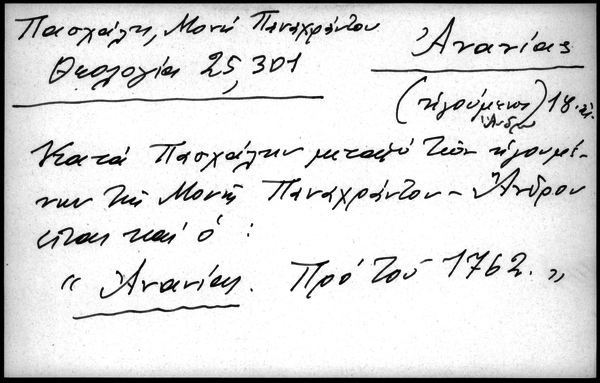 Πασχάλη, Μονή Παναχράντου
Θεολογία 25, 301
Ἀνανίας
(ἡγούμενος) 18. αἰ.
Ἄνδρου
Κατά Πασχάλην μεταξύ τῶν ἡγουμέ-
νων τῆς Μονῆς Παναχράντου - Ἄνδρου
εἶναι καί ὁ :
" Ἀνανίας. Πρό τοῦ 1762. "